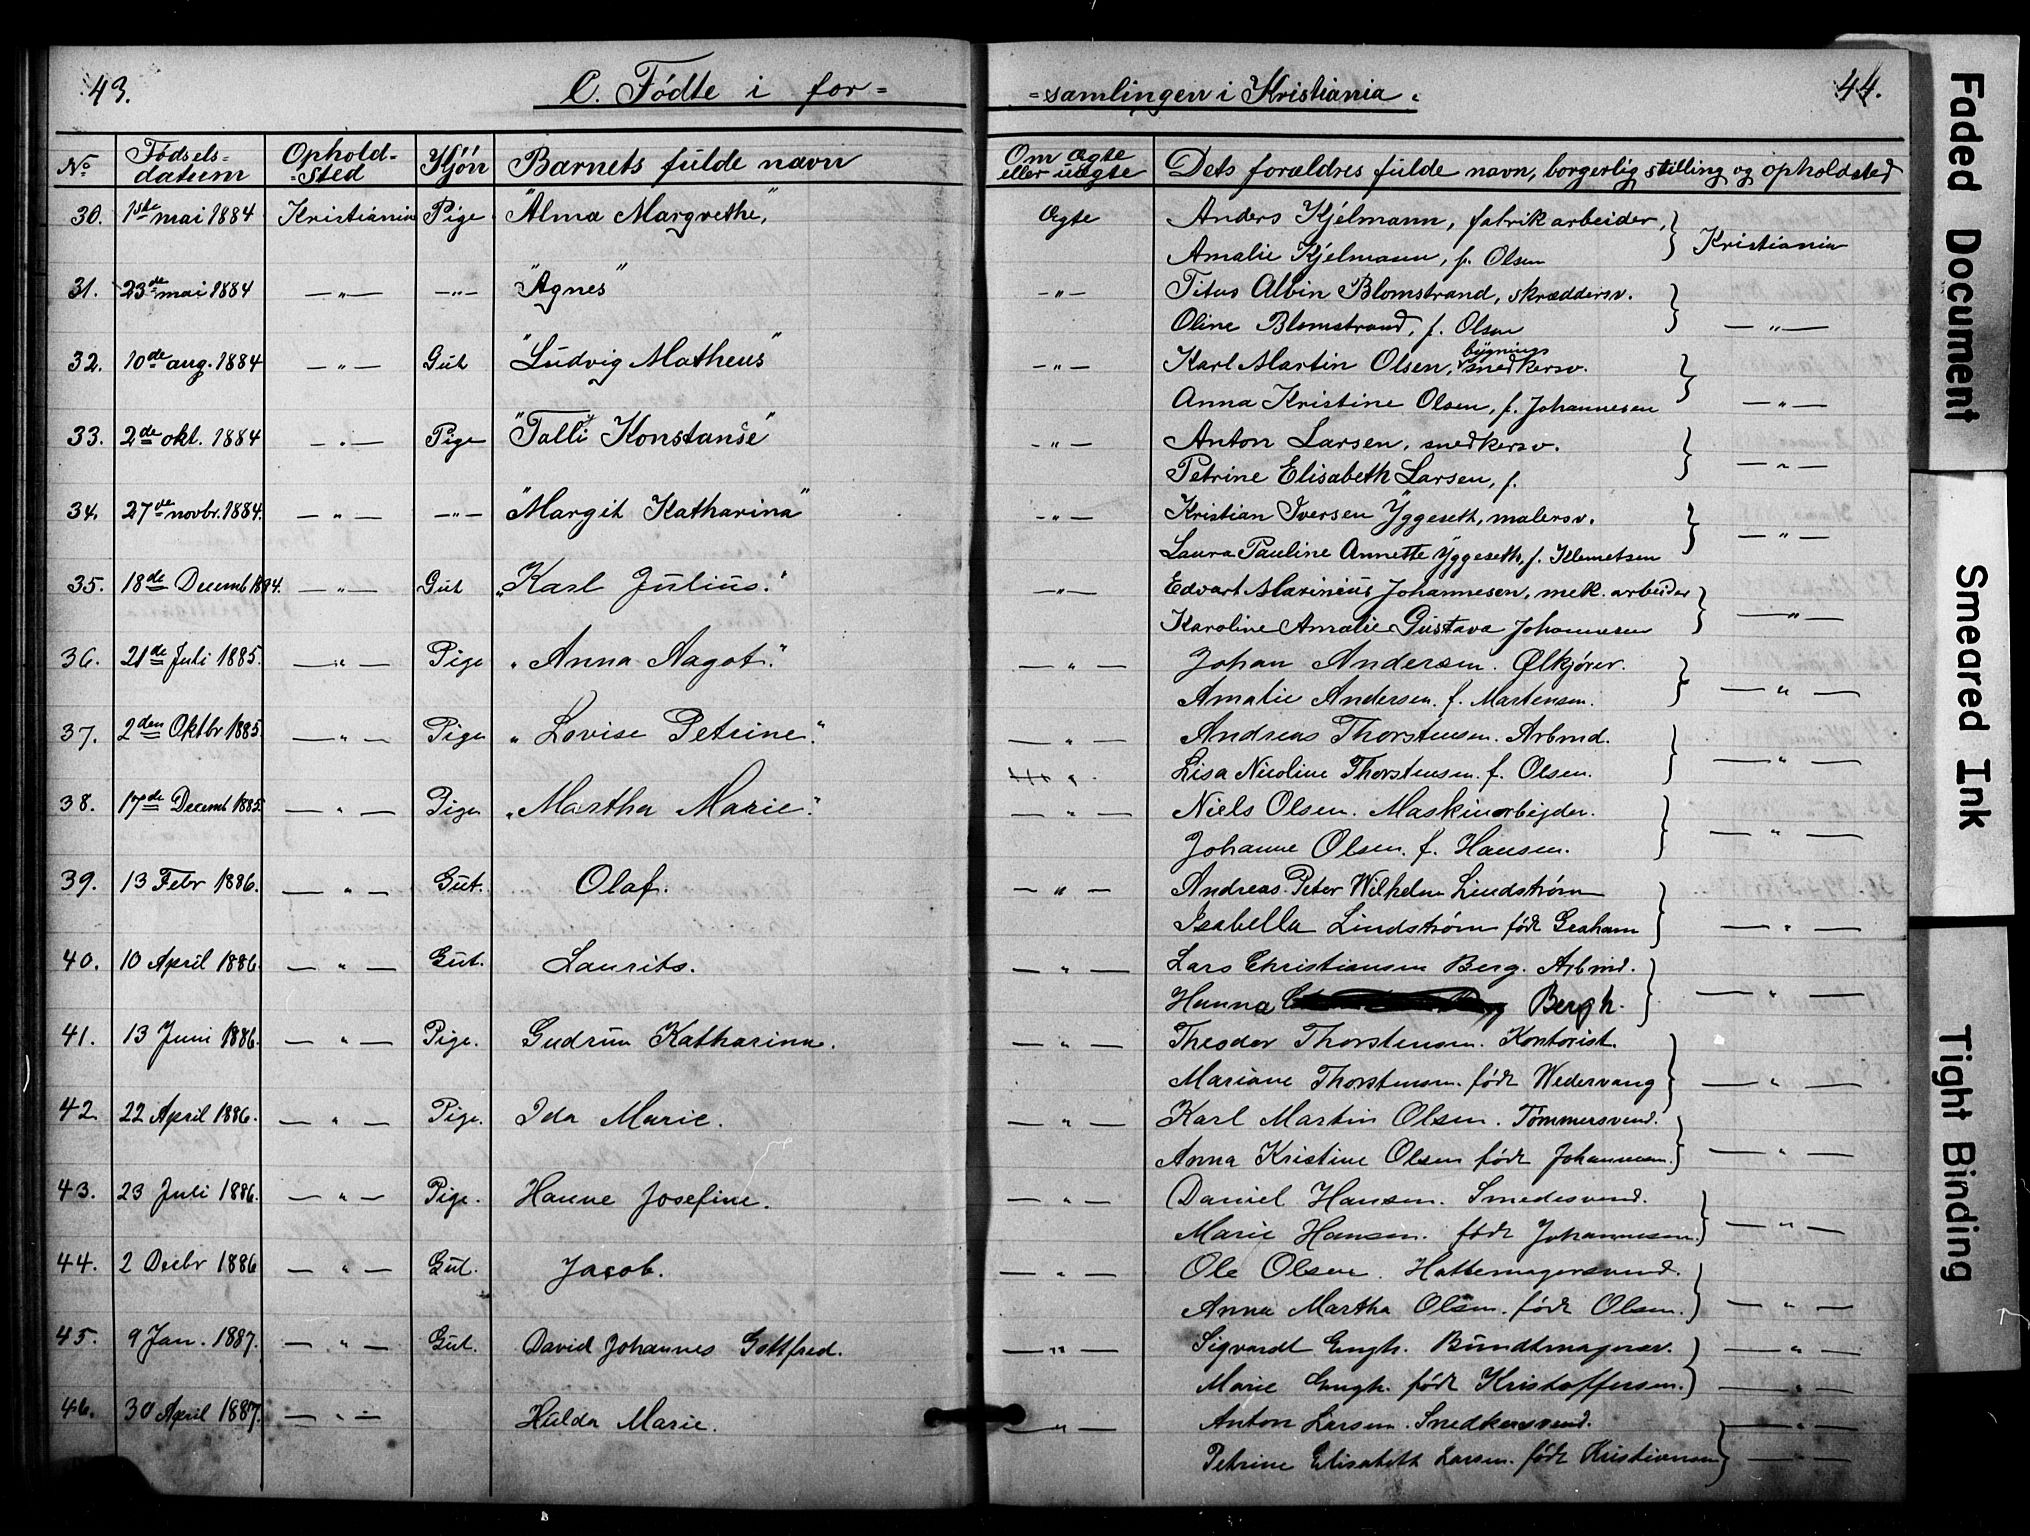 43.
C. Fødte i for=
=samlingen i Kristiania.
44.
No
Fødsels=datum
Ophold-sted
Kjön
Barnets fulde navn
Om ægte eller uægte
Dets forældres fulde navn, borgerlig stilling og opholdsted
30. 1ste mai 1884 Kristiania Pige "Alma Margrethe," Ægte Anders Kjelmann, fabrikarbeider, } Kristiania
Amalie Kjelmann, f. Olsen
31. 23de mai 1884 —"— —"— "Agnes" —"— Titus Albin Blomstrand, skræddersv. }
Oline Blomstrand, f. Olsen —"—
32. 10de aug. 1884 —"— Gut "Ludvig Matheus" —"— Karl Martin Olsen, bygnings snedkersv. }
Anna Kristine Olsen, f. Johannesen —"—
33. 2de okt. 1884 —"— Pige "Talli Konstanse" —"— Anton Larsen, snedkersv. }
Petrine Elisabeth Larsen, f. —"—
34. 27de novbr. 1884. —"— —"— "Margit Katharina" —"— Kristian Iversen Yggeseth, malersv. }
Laura Pauline Annette Yggeseth, f. Klemetsen —"—
35. 18de Decemb 1894. —"— Gut "Karl Julius." —"— Edvart Marinius Johannesen, mek. arbeider }
Karoline Amalie Gustava Johannesen —"—
36. 21de Juli 1885. —"— Pige "Anna Aagot." —"— Johan Andersen. Ølkjører. }
Amalie Andersen. f. Martensen. —"—
37. 2den Oktbr 1885. —"— Pige "Lovise Petrine." —"— Andreas Thorstensen. Arbmd. }
Lisa Nicoline Thorstensen. f. Olsen. —"—
38. 17de Decemb 1885. —"— Pige "Martha Marie." —"— Niels Olsen. Maskinarbejder. }
Johanne Olsen. f. Hansen. —"—
39. 13 Febr 1886. —"— Gut. Olaf. —"— Andreas Peter Wilhelm Lindstrøm }
Isabella Lindstrøm født Graham —"—
40. 10 April 1886. —"— Gut. Laurits. —"— Lars Christiansen Berg. Arbmd. }
Hanna Bergh. —"—
41. 13 Juni 1886. —"— Pige. Gudrun Katharina. —"— Theodor Thorstensen. Kontorist. }
Mariane Thorstensen. født Wedervang —"—
42. 22 April 1886. —"— Pige. Ida Marie. —"— Karl Martin Olsen. Tømmersvend. }
Anna Kristine Olsen født Johannesen. —"—
43. 23 Juli 1886. —"— Pige. Hanne Josefine. —"— Daniel Hansen. Smedesvend. }
Marie Hansen. født Johannesen. —"—
44. 2 Decbr 1886 —"— Gut. Jacob. —"— Ole Olsen. Hattemagersvend. }
Anna Martha Olsen. født Olsen. —"—
45. 9 Jan. 1887. —"— Gut. David Johannes Gottfred. —"— Sigvardt Engh. Bundtmagersv. } —"—
Marie Engh. født Kristoffersen. —"—
46. 30 April 1887. —"— Hulda Marie. —"— Anton Larsen. Snedkersvend. } —"—
Petrine Elisabeth Larsen. født Kristiansen —"—
Faded Document
Smeared Ink
Tight Binding